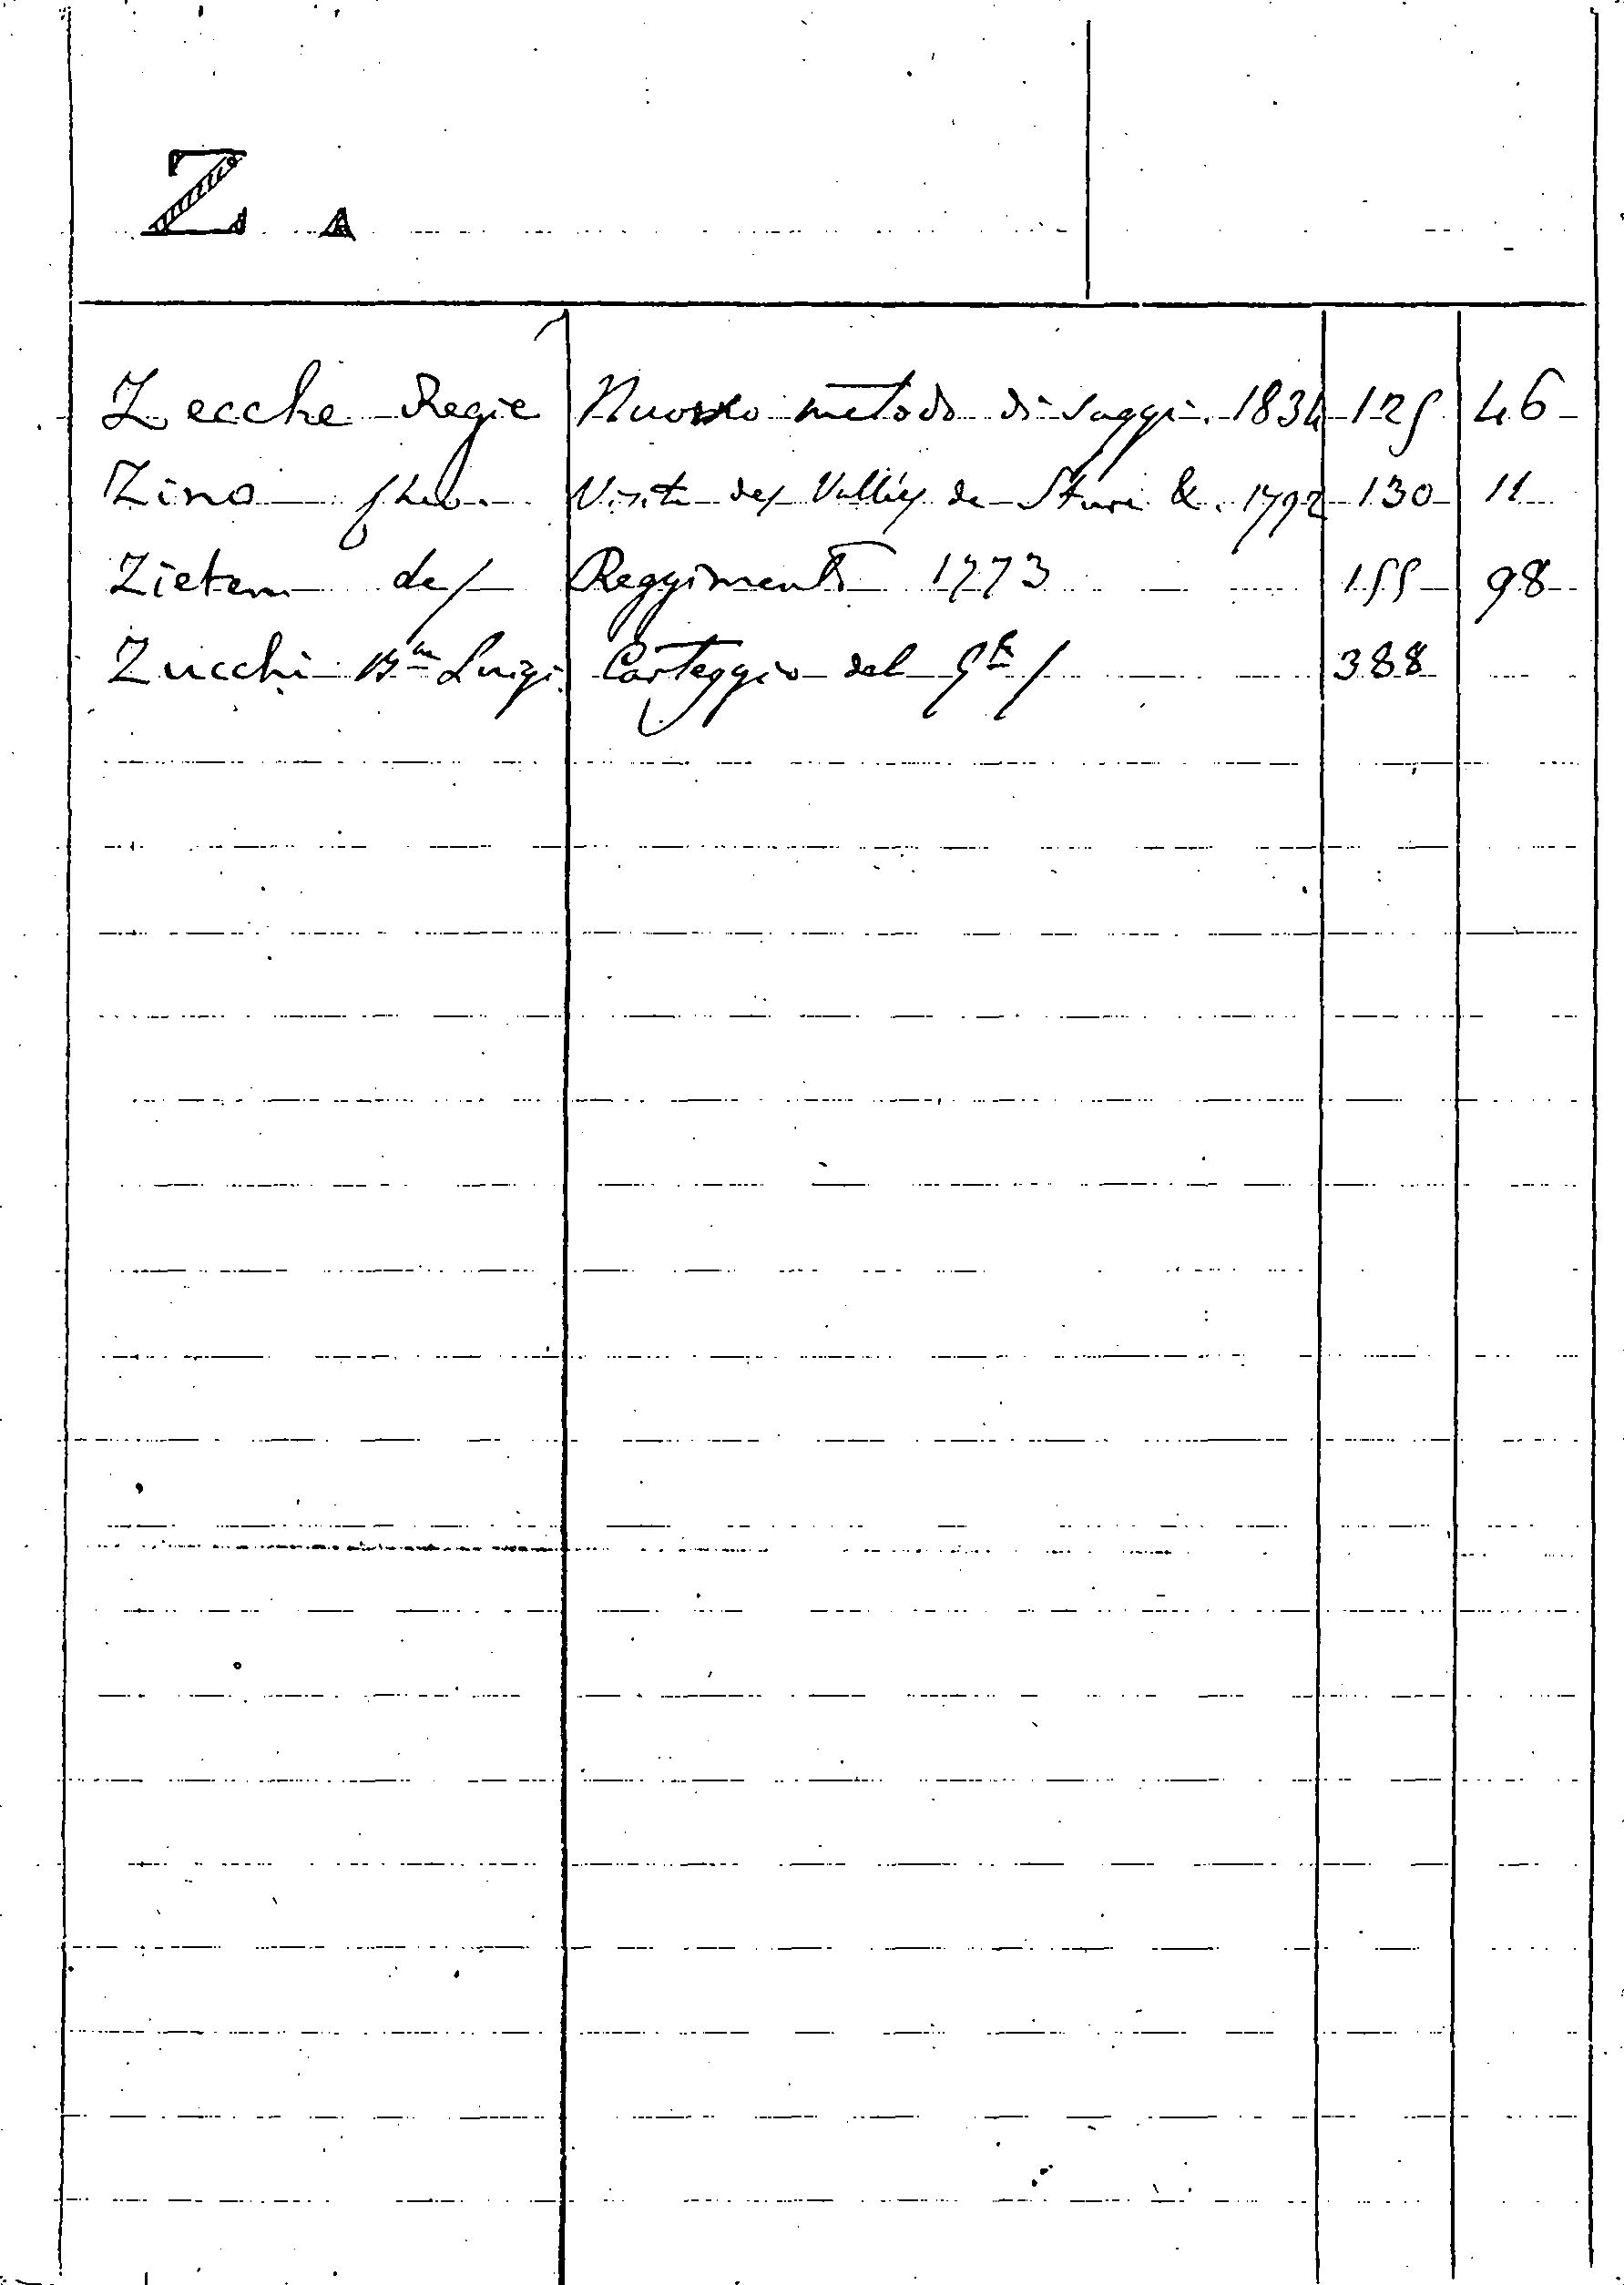 Z.
Zecche Regie Nuovo metodo di saggi. 1834 125 46
Zino Visite des Vallées de Sture &. 1792 130 11
Zieten de/ Reggimenti 1773 155 98
Zucchi Bne Luigi Carteggio del 388